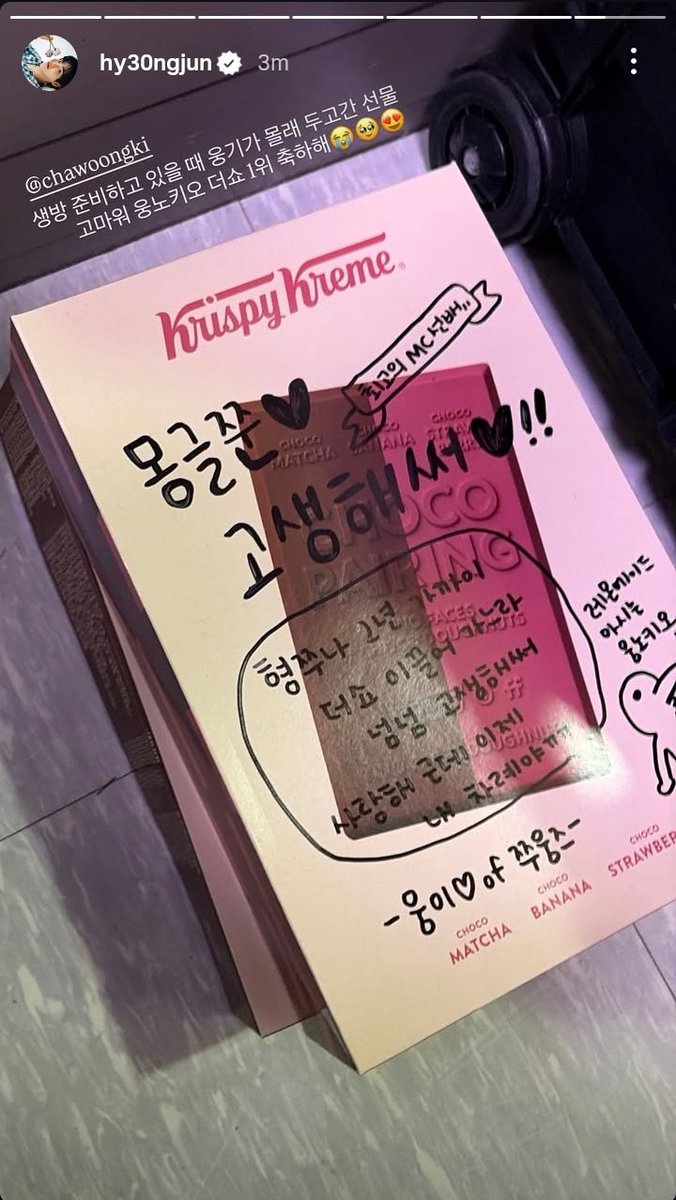 hy30ngjun 3m
@chawoongki
생방 준비하고 있을 때 웅기가 몰래 두고간 선물
고마워 웅노키오 더쇼 1위 축하해😭🥹😍
Krispy Kreme
최고의 MC선배"
몽글쭌♥
고생해써♥!!
CHOCO
MATCHA
CHOCO
BANANA
CHOCO
CHOCO
PAIRING
"형 쭈나 2년 가까이
더쇼 이끌어 가느라
넘넘 고생해써
사랑해 근데 이제
내 차례야ㅠㅠ
레몬메이드
아시는
웅노키오
-웅이♡ of 쭈웅즈-
CHOCO
MATCHA
CHOCO
BANANA
CHOCO
STRAWBER